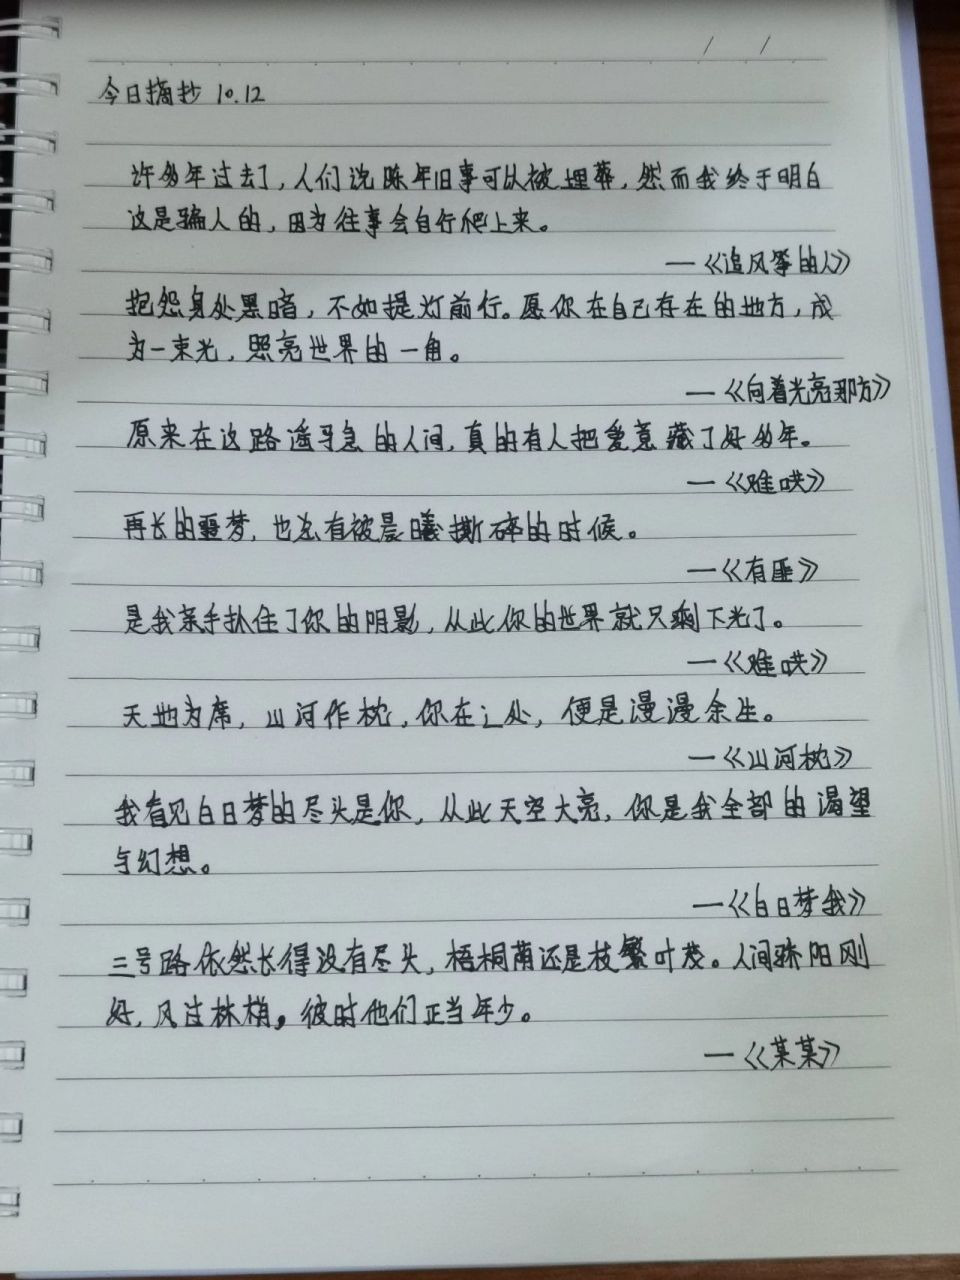 / /
今日摘抄 10.12
许多年过去了,人们说陈年旧事可以被埋葬,然而我终于明白
这是骗人的,因为往事会自行爬上来。
—《追风筝的人》
抱怨身处黑暗,不如提灯前行。愿你在自己存在的地方,成
为一束光,照亮世界的一角。
—《向着光亮那方》
原来在这路遥马急的人间,真的有人把爱意藏了好多年。
—《难哄》
再长的噩梦,也总有被晨曦撕碎的时候。
—《有匪》
是我亲手扒住了你的阴影,从此你的世界就只剩下光了。
—《难哄》
天地为席,山河作枕,你在之处,便是漫漫余生。
—《山河枕》
我看见白日梦的尽头是你,从此天空大亮,你是我全部的渴望
与幻想。
—《白日梦我》
三号路依然长得没有尽头,梧桐荫还是枝繁叶茂。人间骄阳刚
好,风过林梢。彼时他们正当年少。
—《某某》